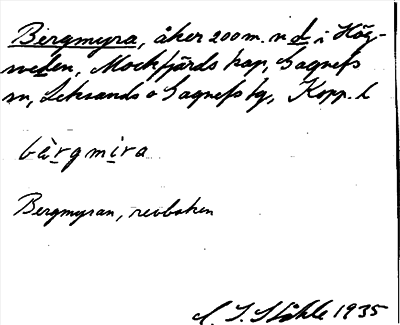 Bergmyra, åker 200 m. n d. i Hög-
sveden, Mockfjärds kap, Gagnefs
sn, Leksands o Gagnefs tg, Kopp. l
bärgmira
Bergmyran, revboken
C. I. Ståhle 1935